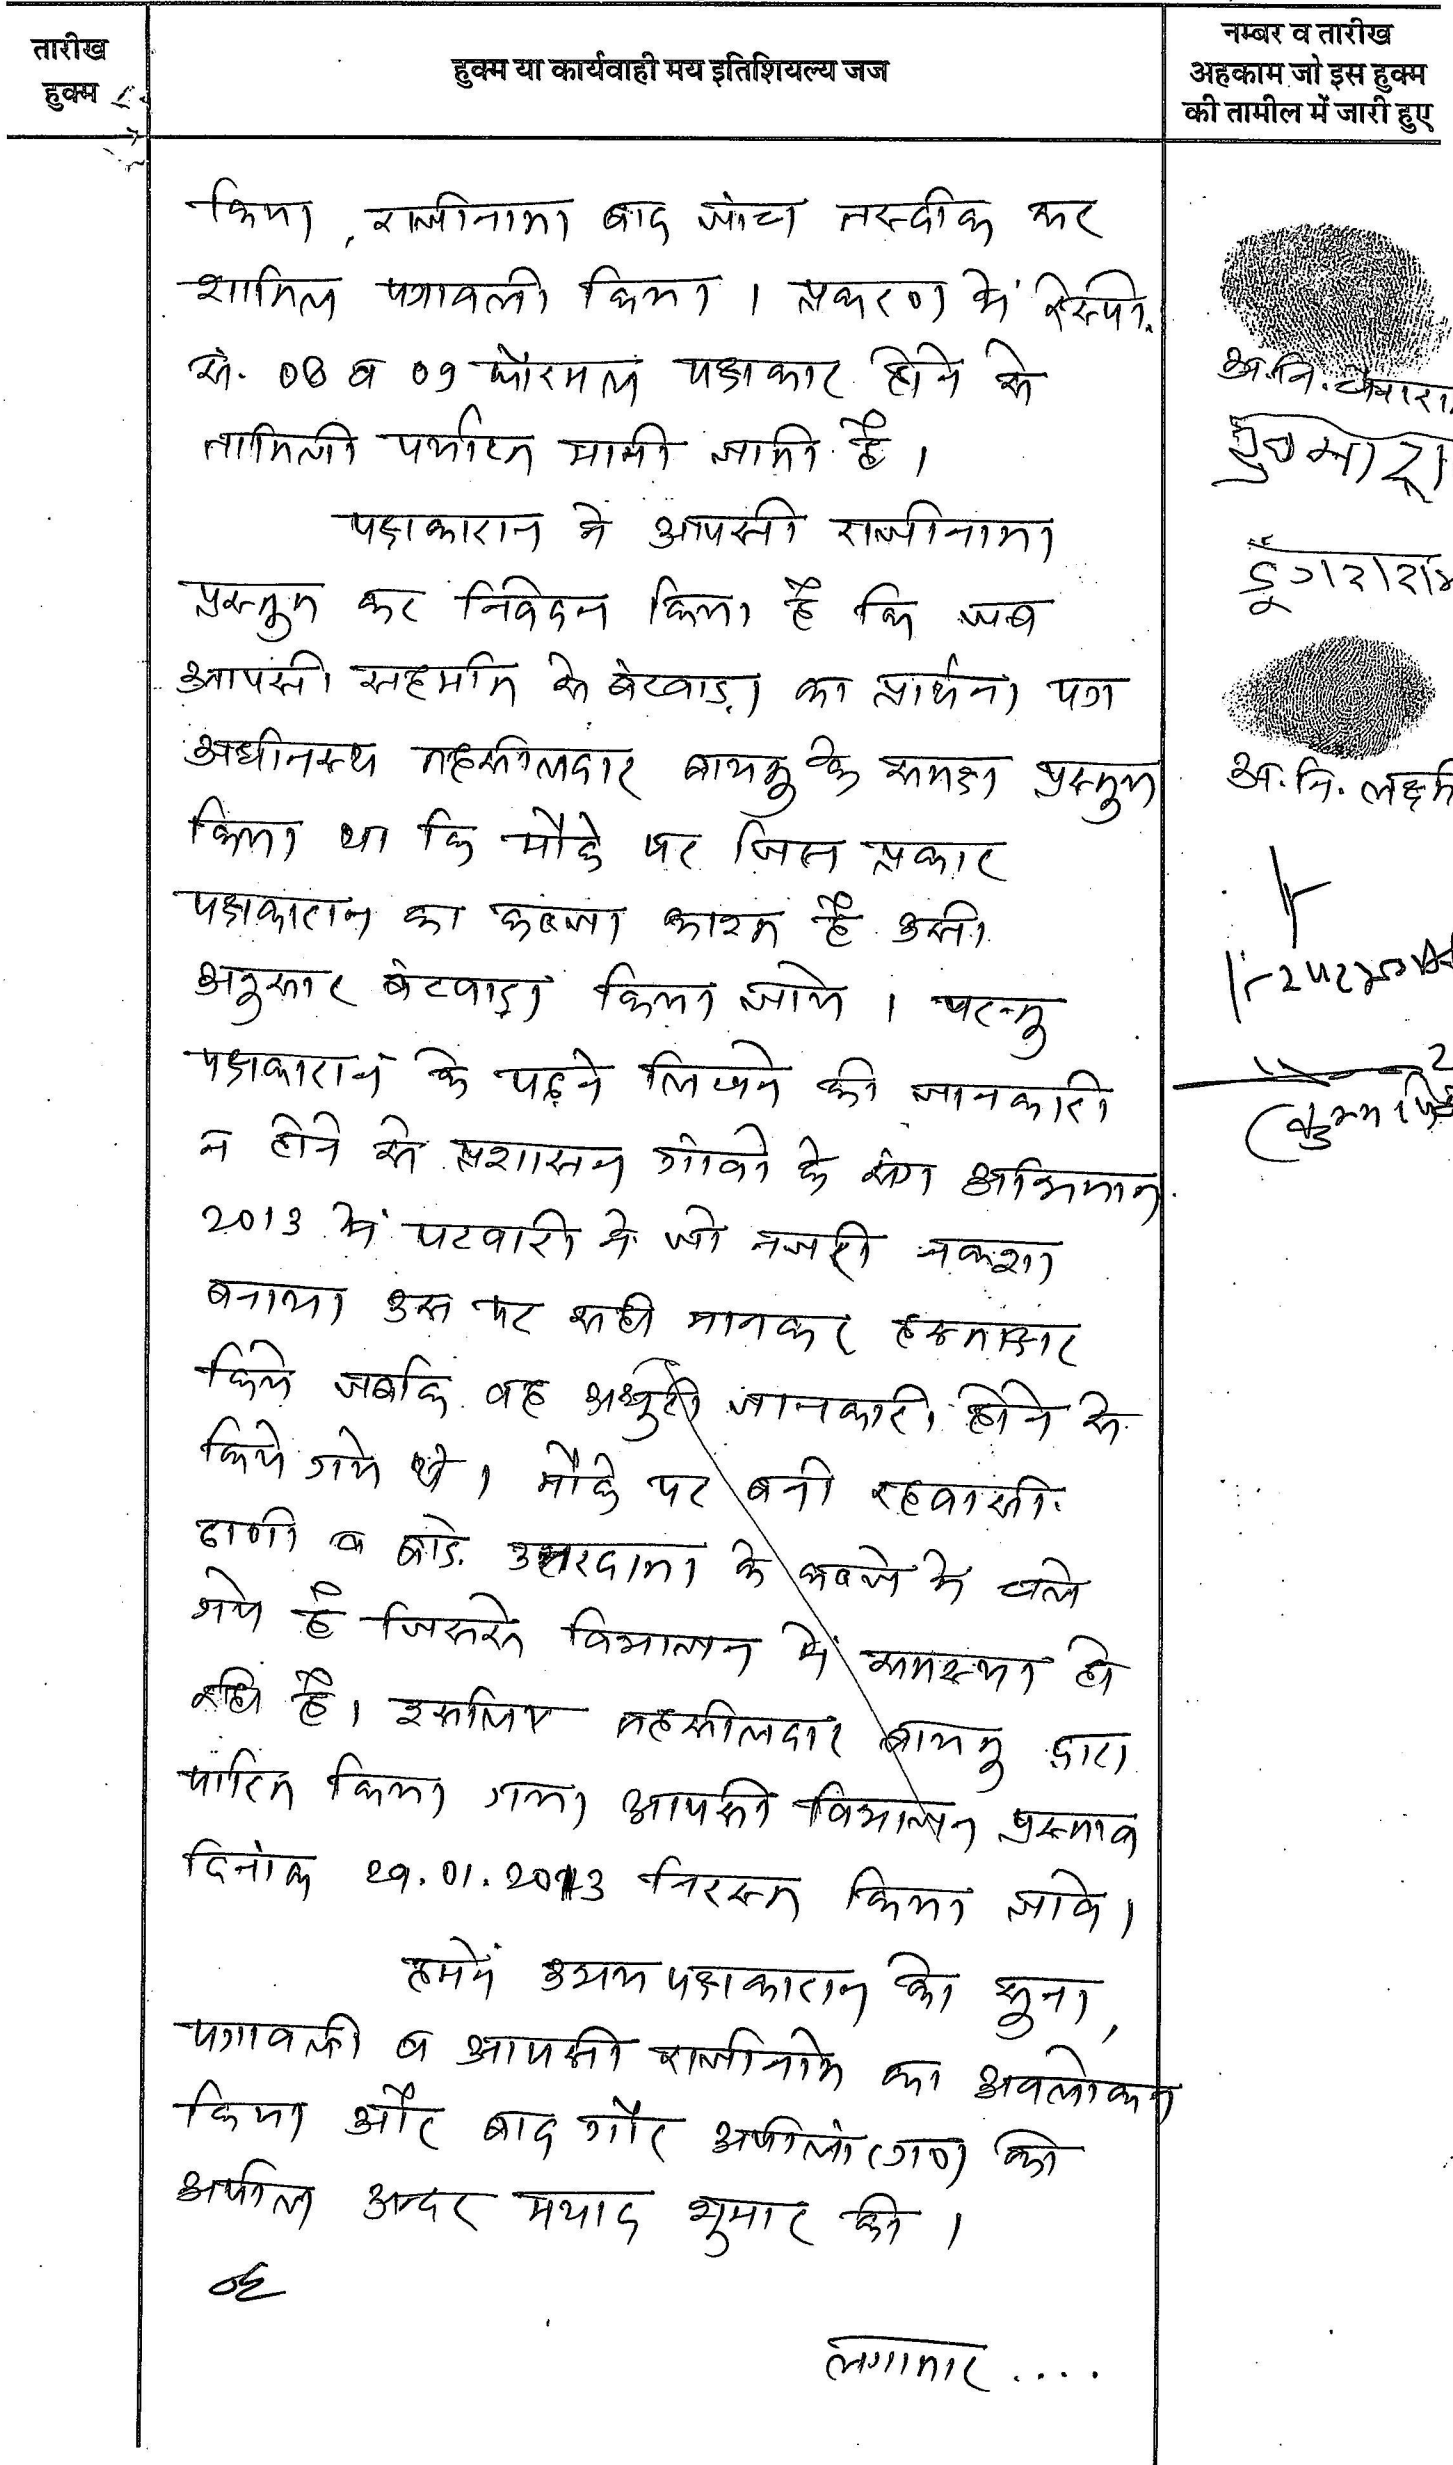 तारीख
हुक्म
हुक्म या कार्यवाही मय इतिशियल्य जज
नम्बर व तारीख
अहकाम जो इस हुक्म
की तामील में जारी हुए
किया, राजीनामा बाद जांच तस्दीक कर
शामिल पत्रावली किया । प्रकरण में रेस्पो.
सं. 08 व 09 फौरमल पक्षकार होने से
तामिली पर्याप्त मानी जाती है ।
पक्षकारान ने आपसी राजीनामा
प्रस्तुत कर निवेदन किया है कि जब
आपसी सहमति से बंटवाड़ा का प्रार्थना पत्र
अधीनस्थ तहसीलदार बायतु के समक्ष प्रस्तुत
किया था कि मौके पर जिस प्रकार
पक्षकारान का कब्जा काश्त है उसी
अनुसार बंटवाड़ा किया जाये । परन्तु
पक्षकारान के पढ़ने लिखने की जानकारी
न होने से प्रशासन गांवो के संग अभियान
2013 में पटवारी ने जो नजरी नक्शा
बनाया उस पर सही मानकर हस्ताक्षर
किये जबकि वह अधुरी जानकारी होने से
किये गये थे । मौके पर बनी रहवासी
ढाणी व बाड़े उत्तरदाता के कब्जे में चले
गये हैं जिससे विभाजन में समस्या हो
रही है । इसलिए तहसीलदार बायतु द्वारा
पारित किया गया आपसी विभाजन प्रस्ताव
दिनांक 29.01.2013 निरस्त किया जावे ।
हमने उभय पक्षकारान को सुना,
पत्रावली व आपसी राजीनामे का अवलोकन
किया और बाद गौर अपीलांटगण की
अपील अन्दर मयाद शुमार की ।
लगातार ....
अ.नि.
डूँगराराम
अ.नि. लक्ष्म